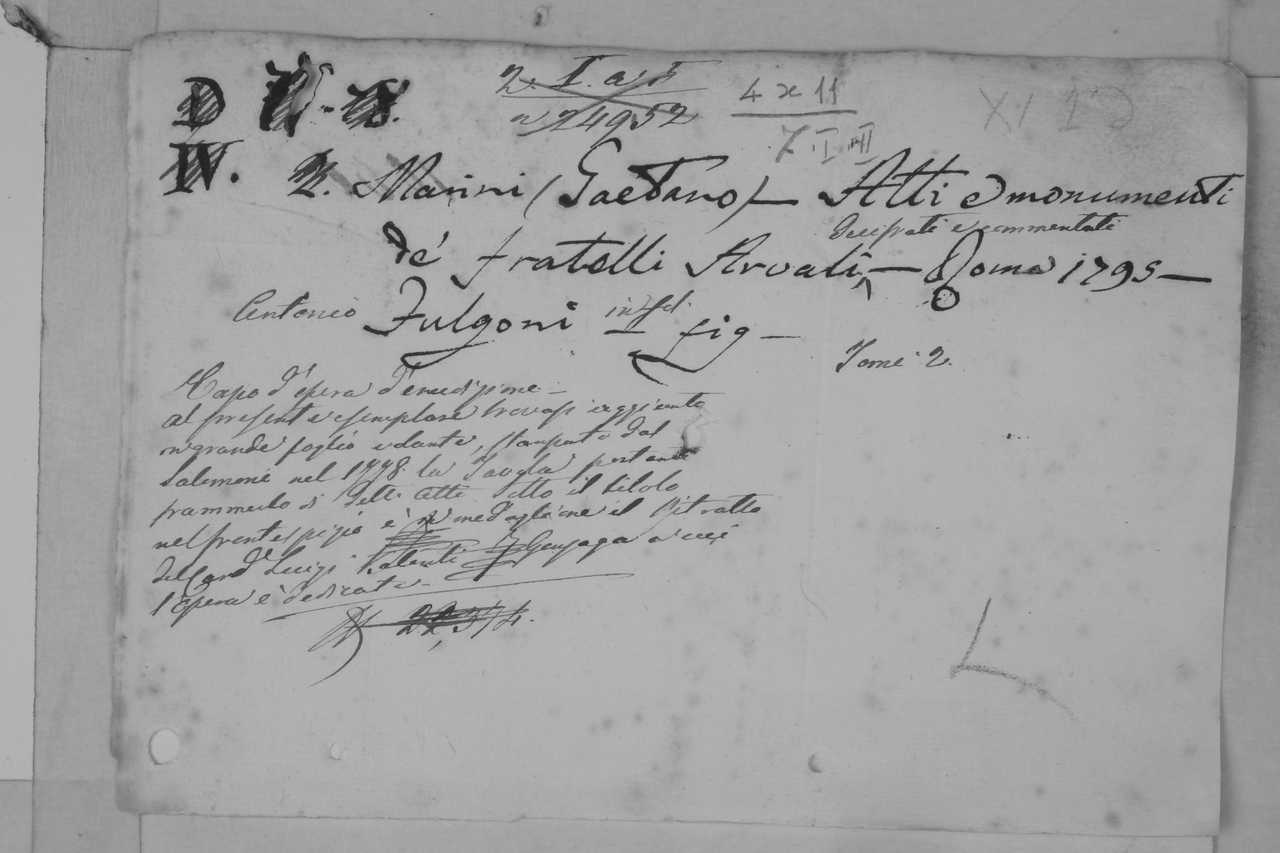 2. I. a 5
4 x 11
XI 12
D
n 24952
7 I III
IV. 2. Marini (Gaetano) — Atti e monumenti
decifrati e commentati
de' fratelli Arvali, — Roma 1795 —
Antonio Fulgoni in fol fig —
Tomi 2.
Capo d'opera d'erudizione —
al presente esemplare trovasi aggiunto
in grande foglio volante, stampato dal
Salomoni nel 1778 la Tavola portante
frammento di detti atti. Sotto il titolo
nel frontespizio è in medaglione il Ritratto
del Card. Luigi Valenti Gonzaga a cui
l'Opera è dedicata —
L